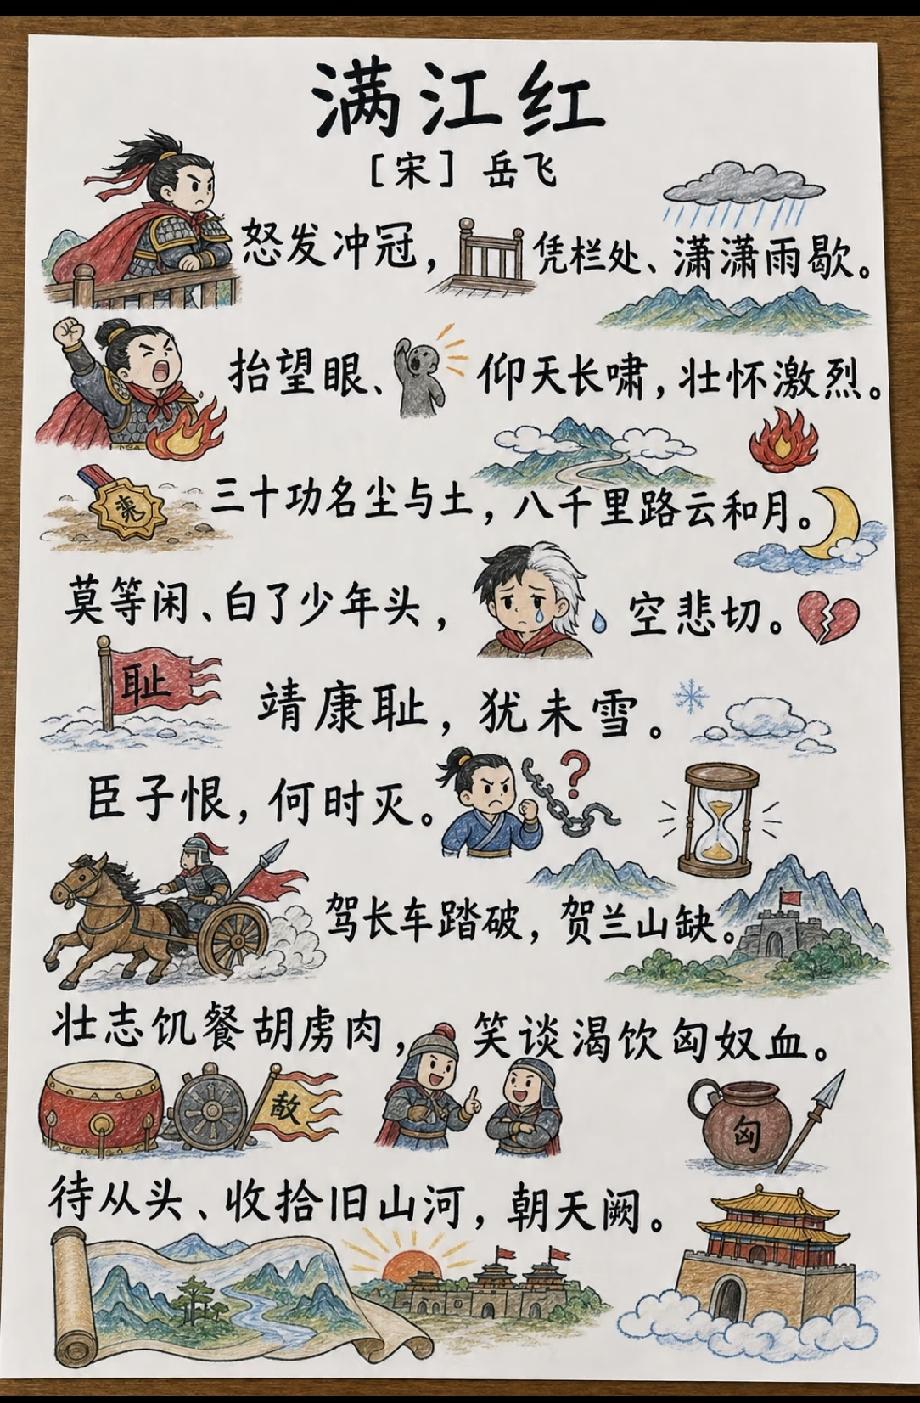 满江红
［宋］岳飞
怒发冲冠，凭栏处、潇潇雨歇。
抬望眼、仰天长啸，壮怀激烈。
三十功名尘与土，八千里路云和月。
莫等闲、白了少年头，空悲切。
耻
靖康耻，犹未雪。
臣子恨，何时灭。
驾长车踏破，贺兰山缺。
壮志饥餐胡虏肉，笑谈渴饮匈奴血。
匈
待从头、收拾旧山河，朝天阙。